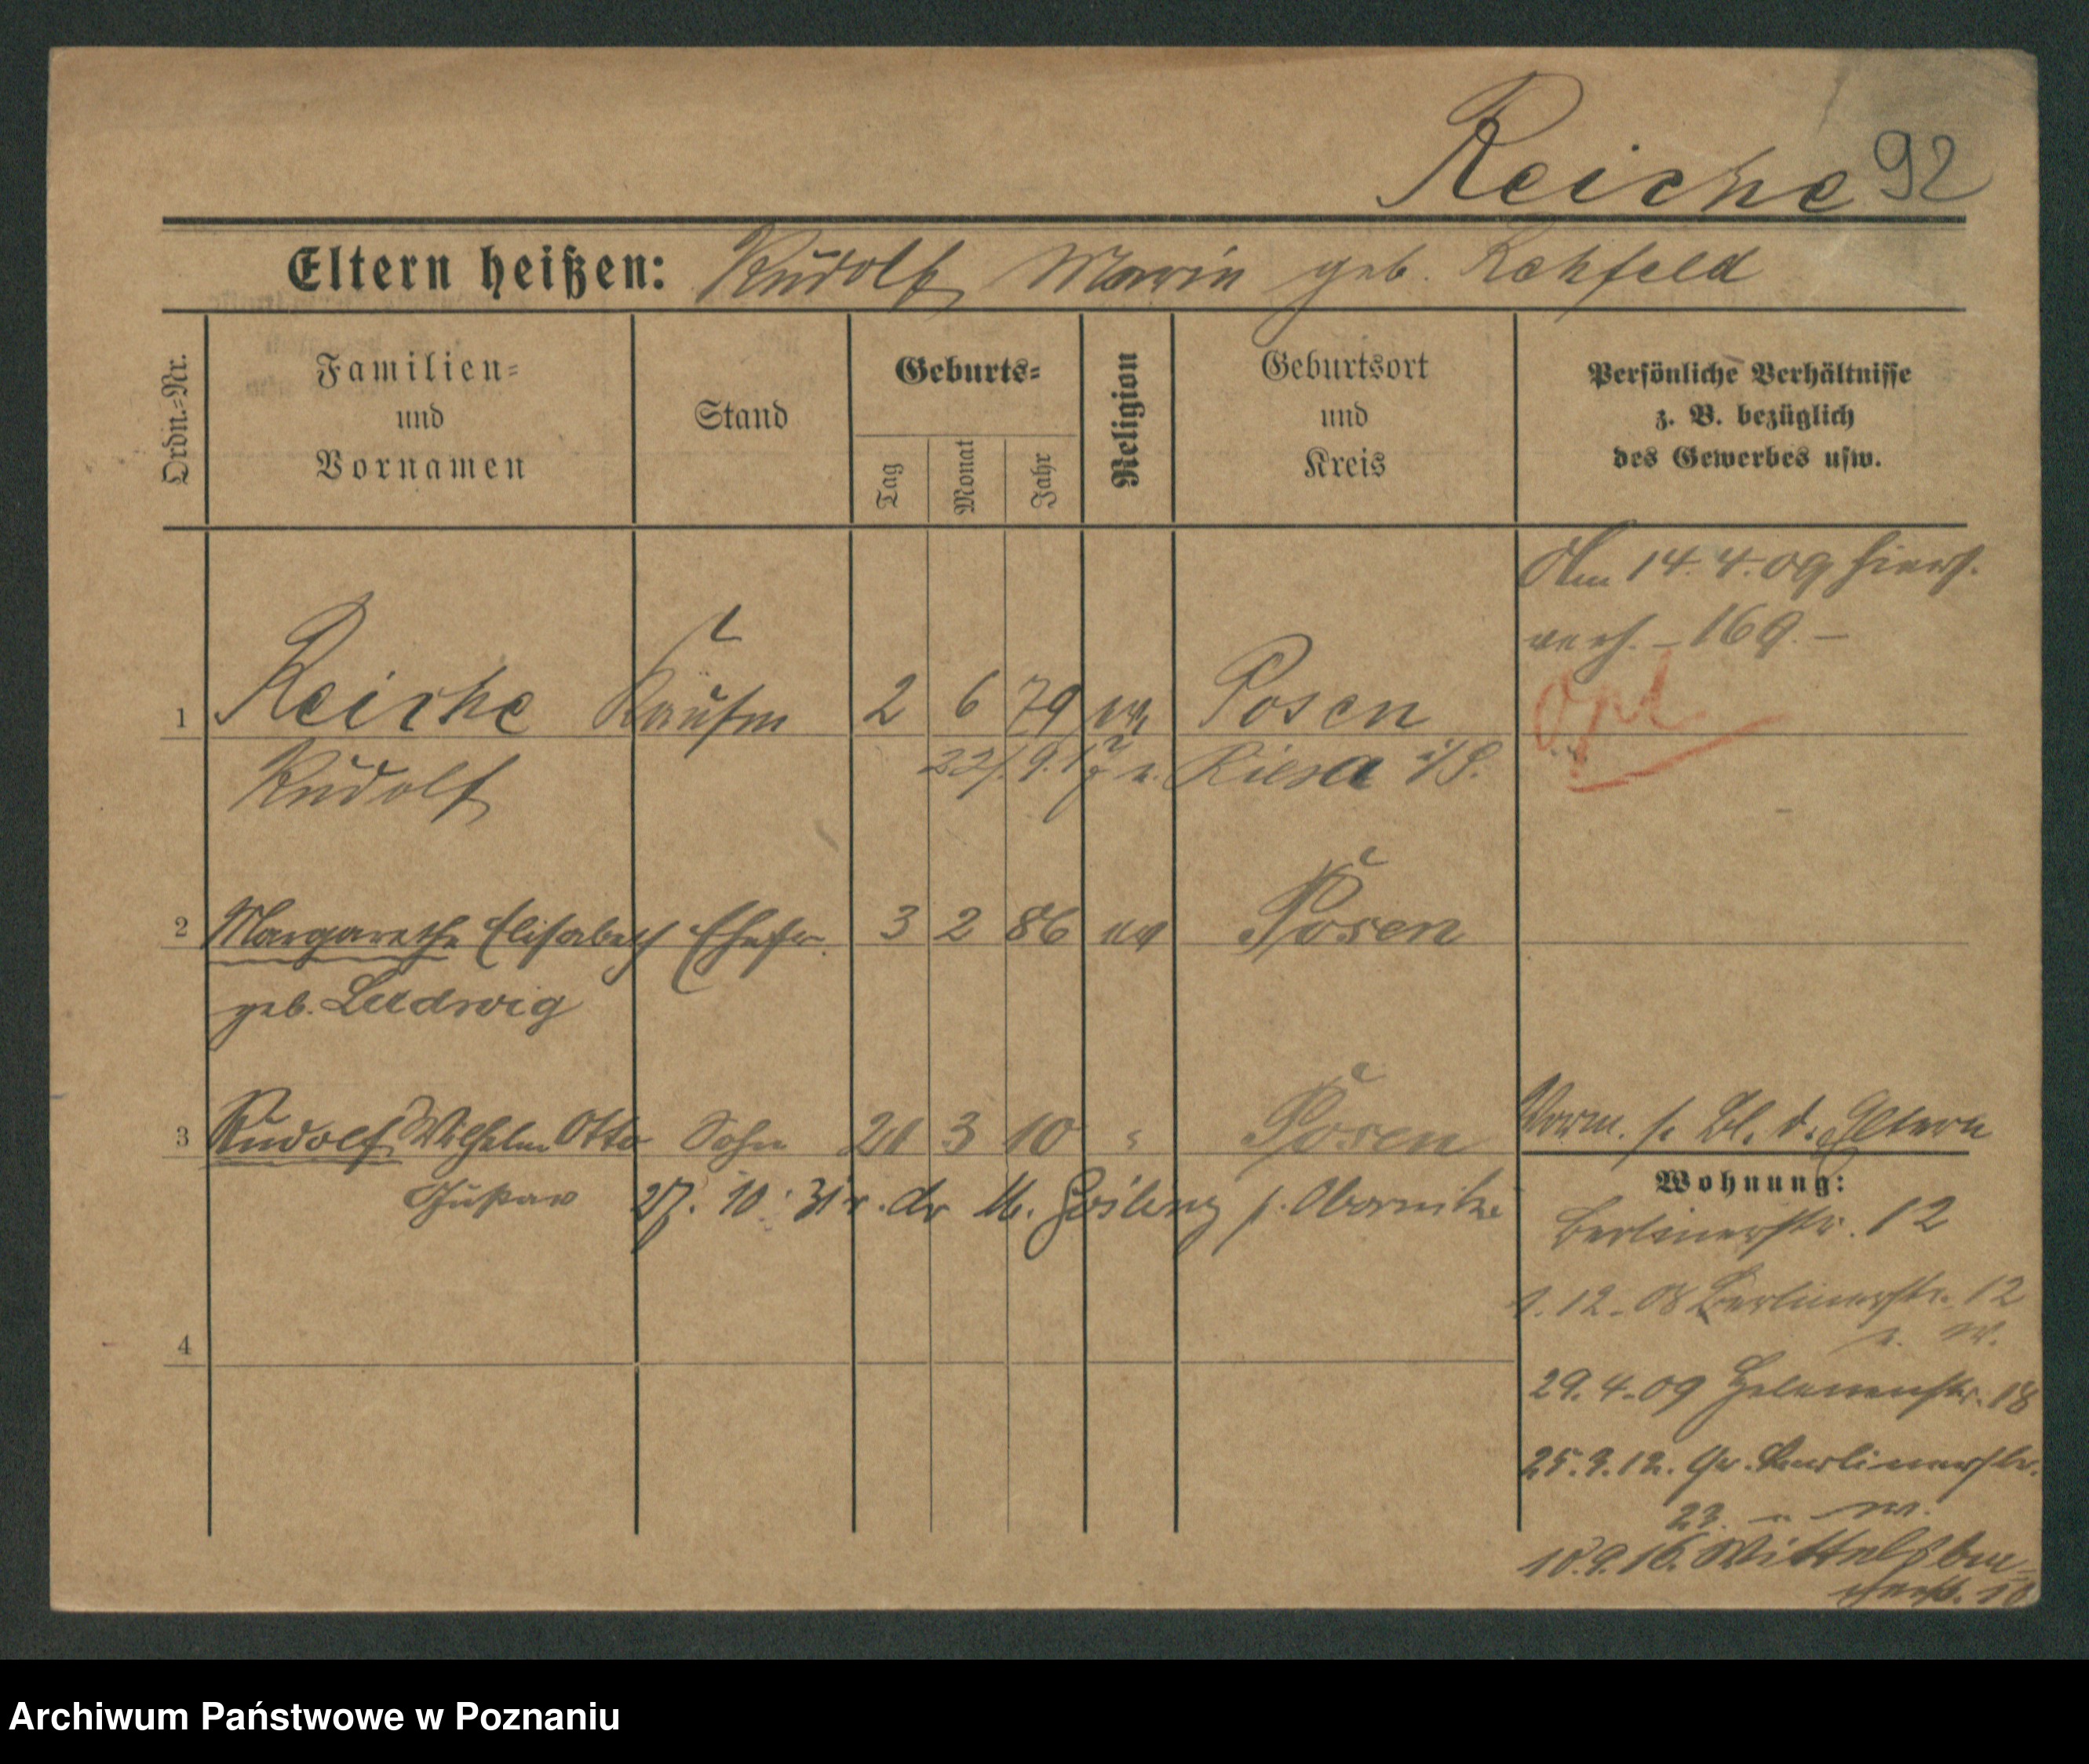 Reiche 92
Eltern heißen: Rudolf Marie geb. Rehfeld
Ordn.-Nr.
Familien-
und
Vornamen
Stand
Geburts-
Tag
Monat
Jahr
Religion
Geburtsort
und
Kreis
Persönliche Verhältnisse
z. B. bezüglich
des Gewerbes usw.
Am 14.4.09 hiers.
verh. – 169. –
1 Reiche Kaufm 2 6 79 ev. Posen
Opt
Rudolf 22/.9.17 n. Riesa i/S.
2 Margarethe Elisabeth Ehefr. 3 2 86 ev Posen
geb. Ludwig
3 Rudolf Wilhelm Otto Sohn 21 3 10 " Posen
Vorm. s. Bl. d. Eltern
Gustav 27. 10. 31 v. d. M. p. Obornike
Wohnung:
Berlinerstr. 12
1. 12. 08 Berlinerstr. 12
4
29. 4. 09 Helenenstr. 18
25.3.12. Gr. Berlinerstr.
23. – w.
18.9.16. Wittelsba-
cherstr. 10
Archiwum Państwowe w Poznaniu